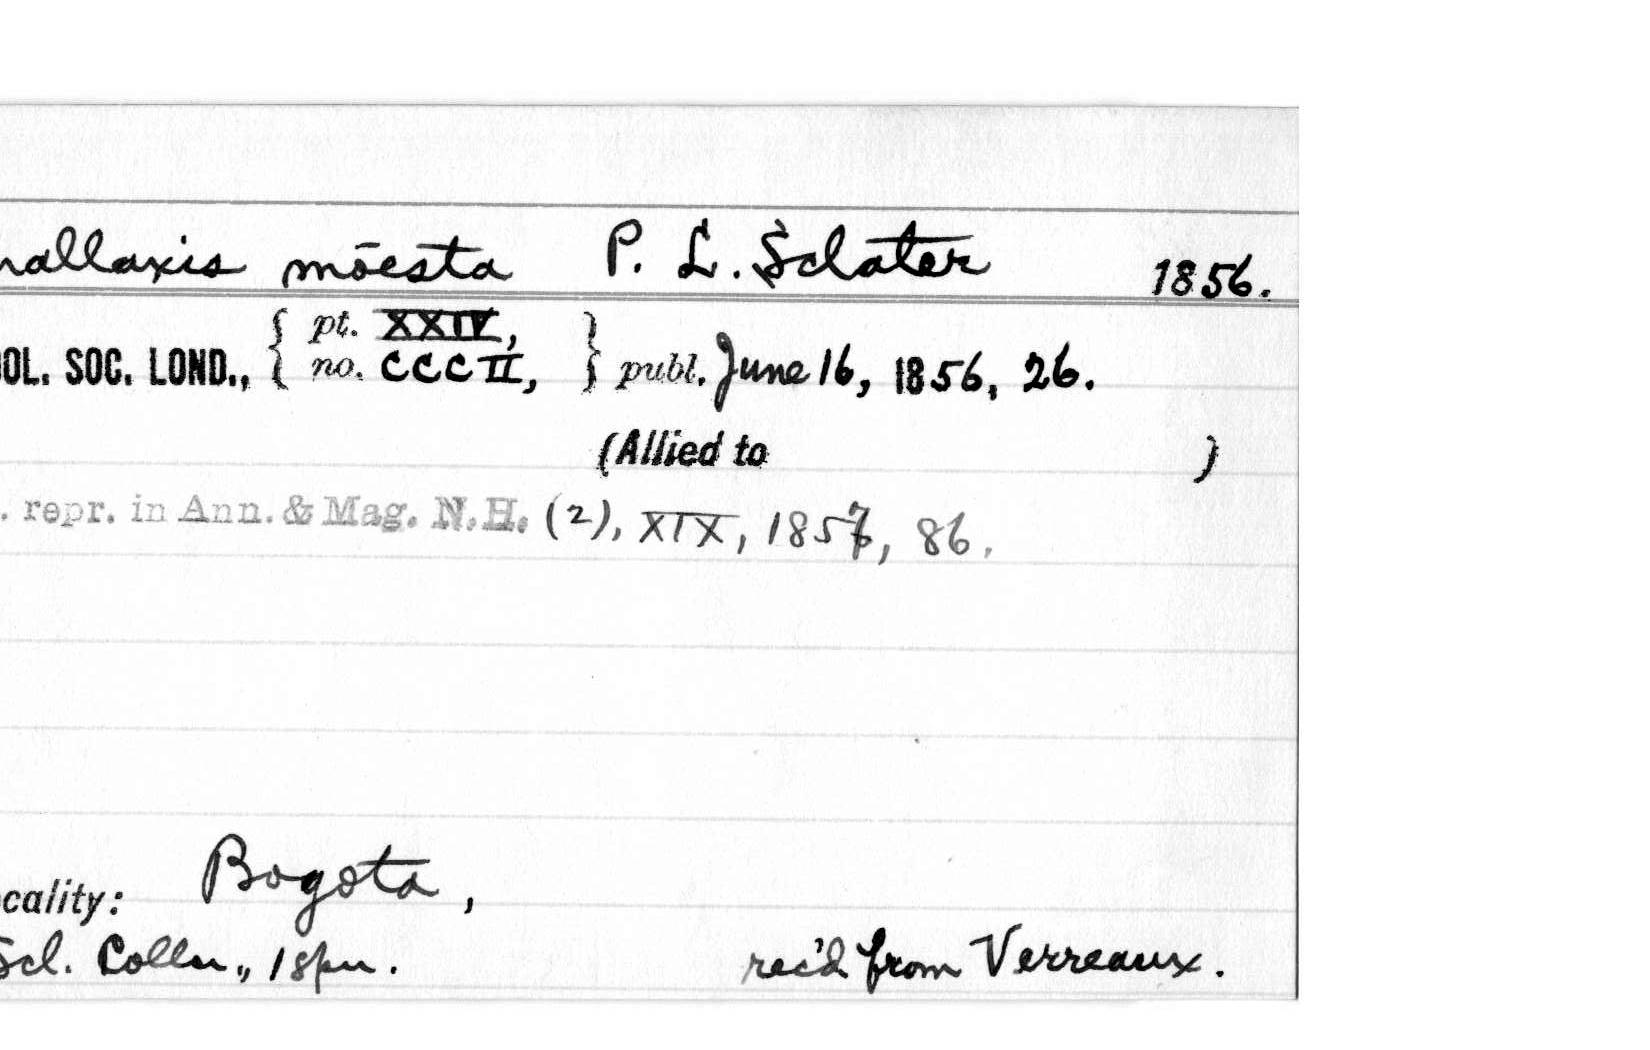 nallaxis mōesta P. L. Sclater 1856.
OOL. SOC. LOND., { pt. XXIV, no. CCCII, } publ. June 16, 1856, 26.
(Allied to )
. repr. in Ann. & Mag. N.H. (2), XIX, 1857, 86.
ocality: Bogota,
Scl. Colln., 1 spn. rec'd from Verreaux.